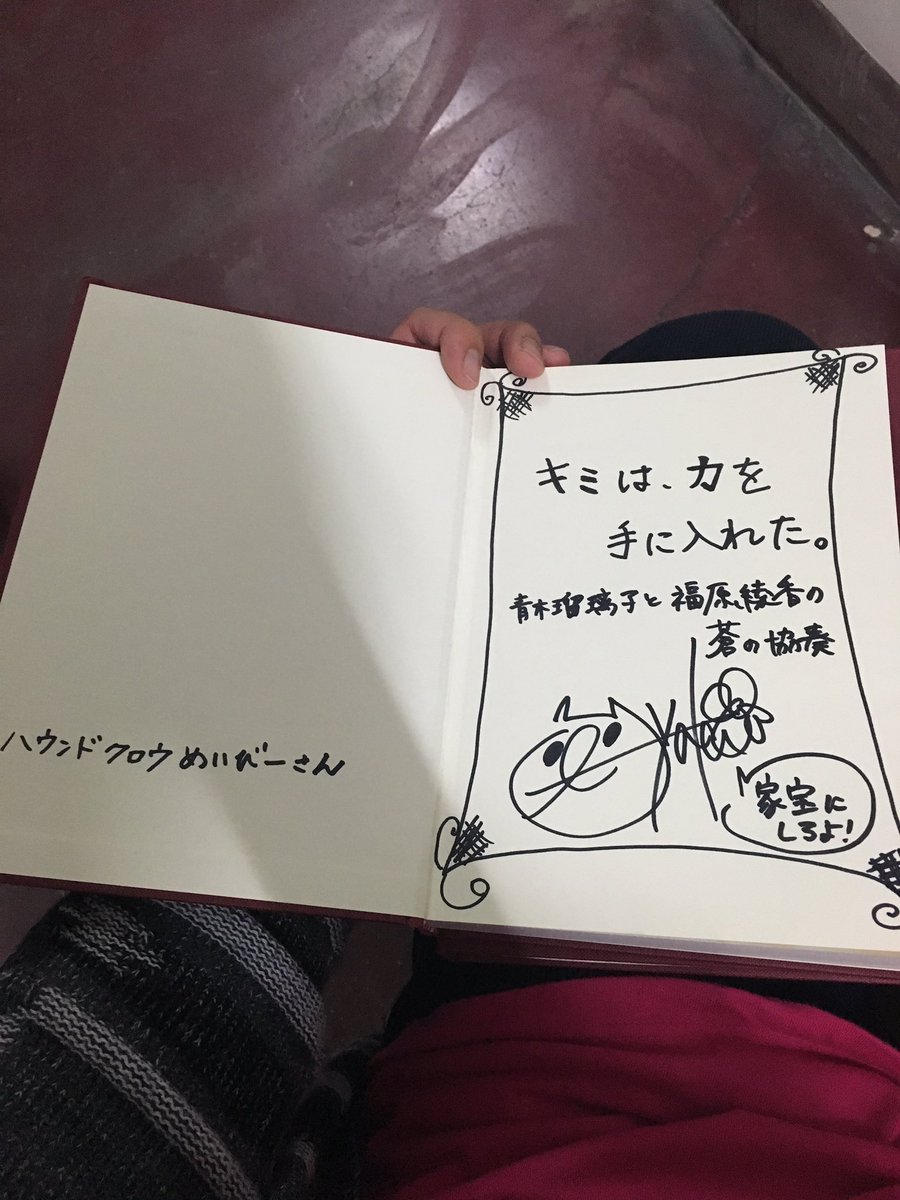 ハウンドクロウめいびーさん
キミは、力を
手に入れた。
青木瑠璃子と福原綾香の
蒼の協奏
家宝に
しろよ!